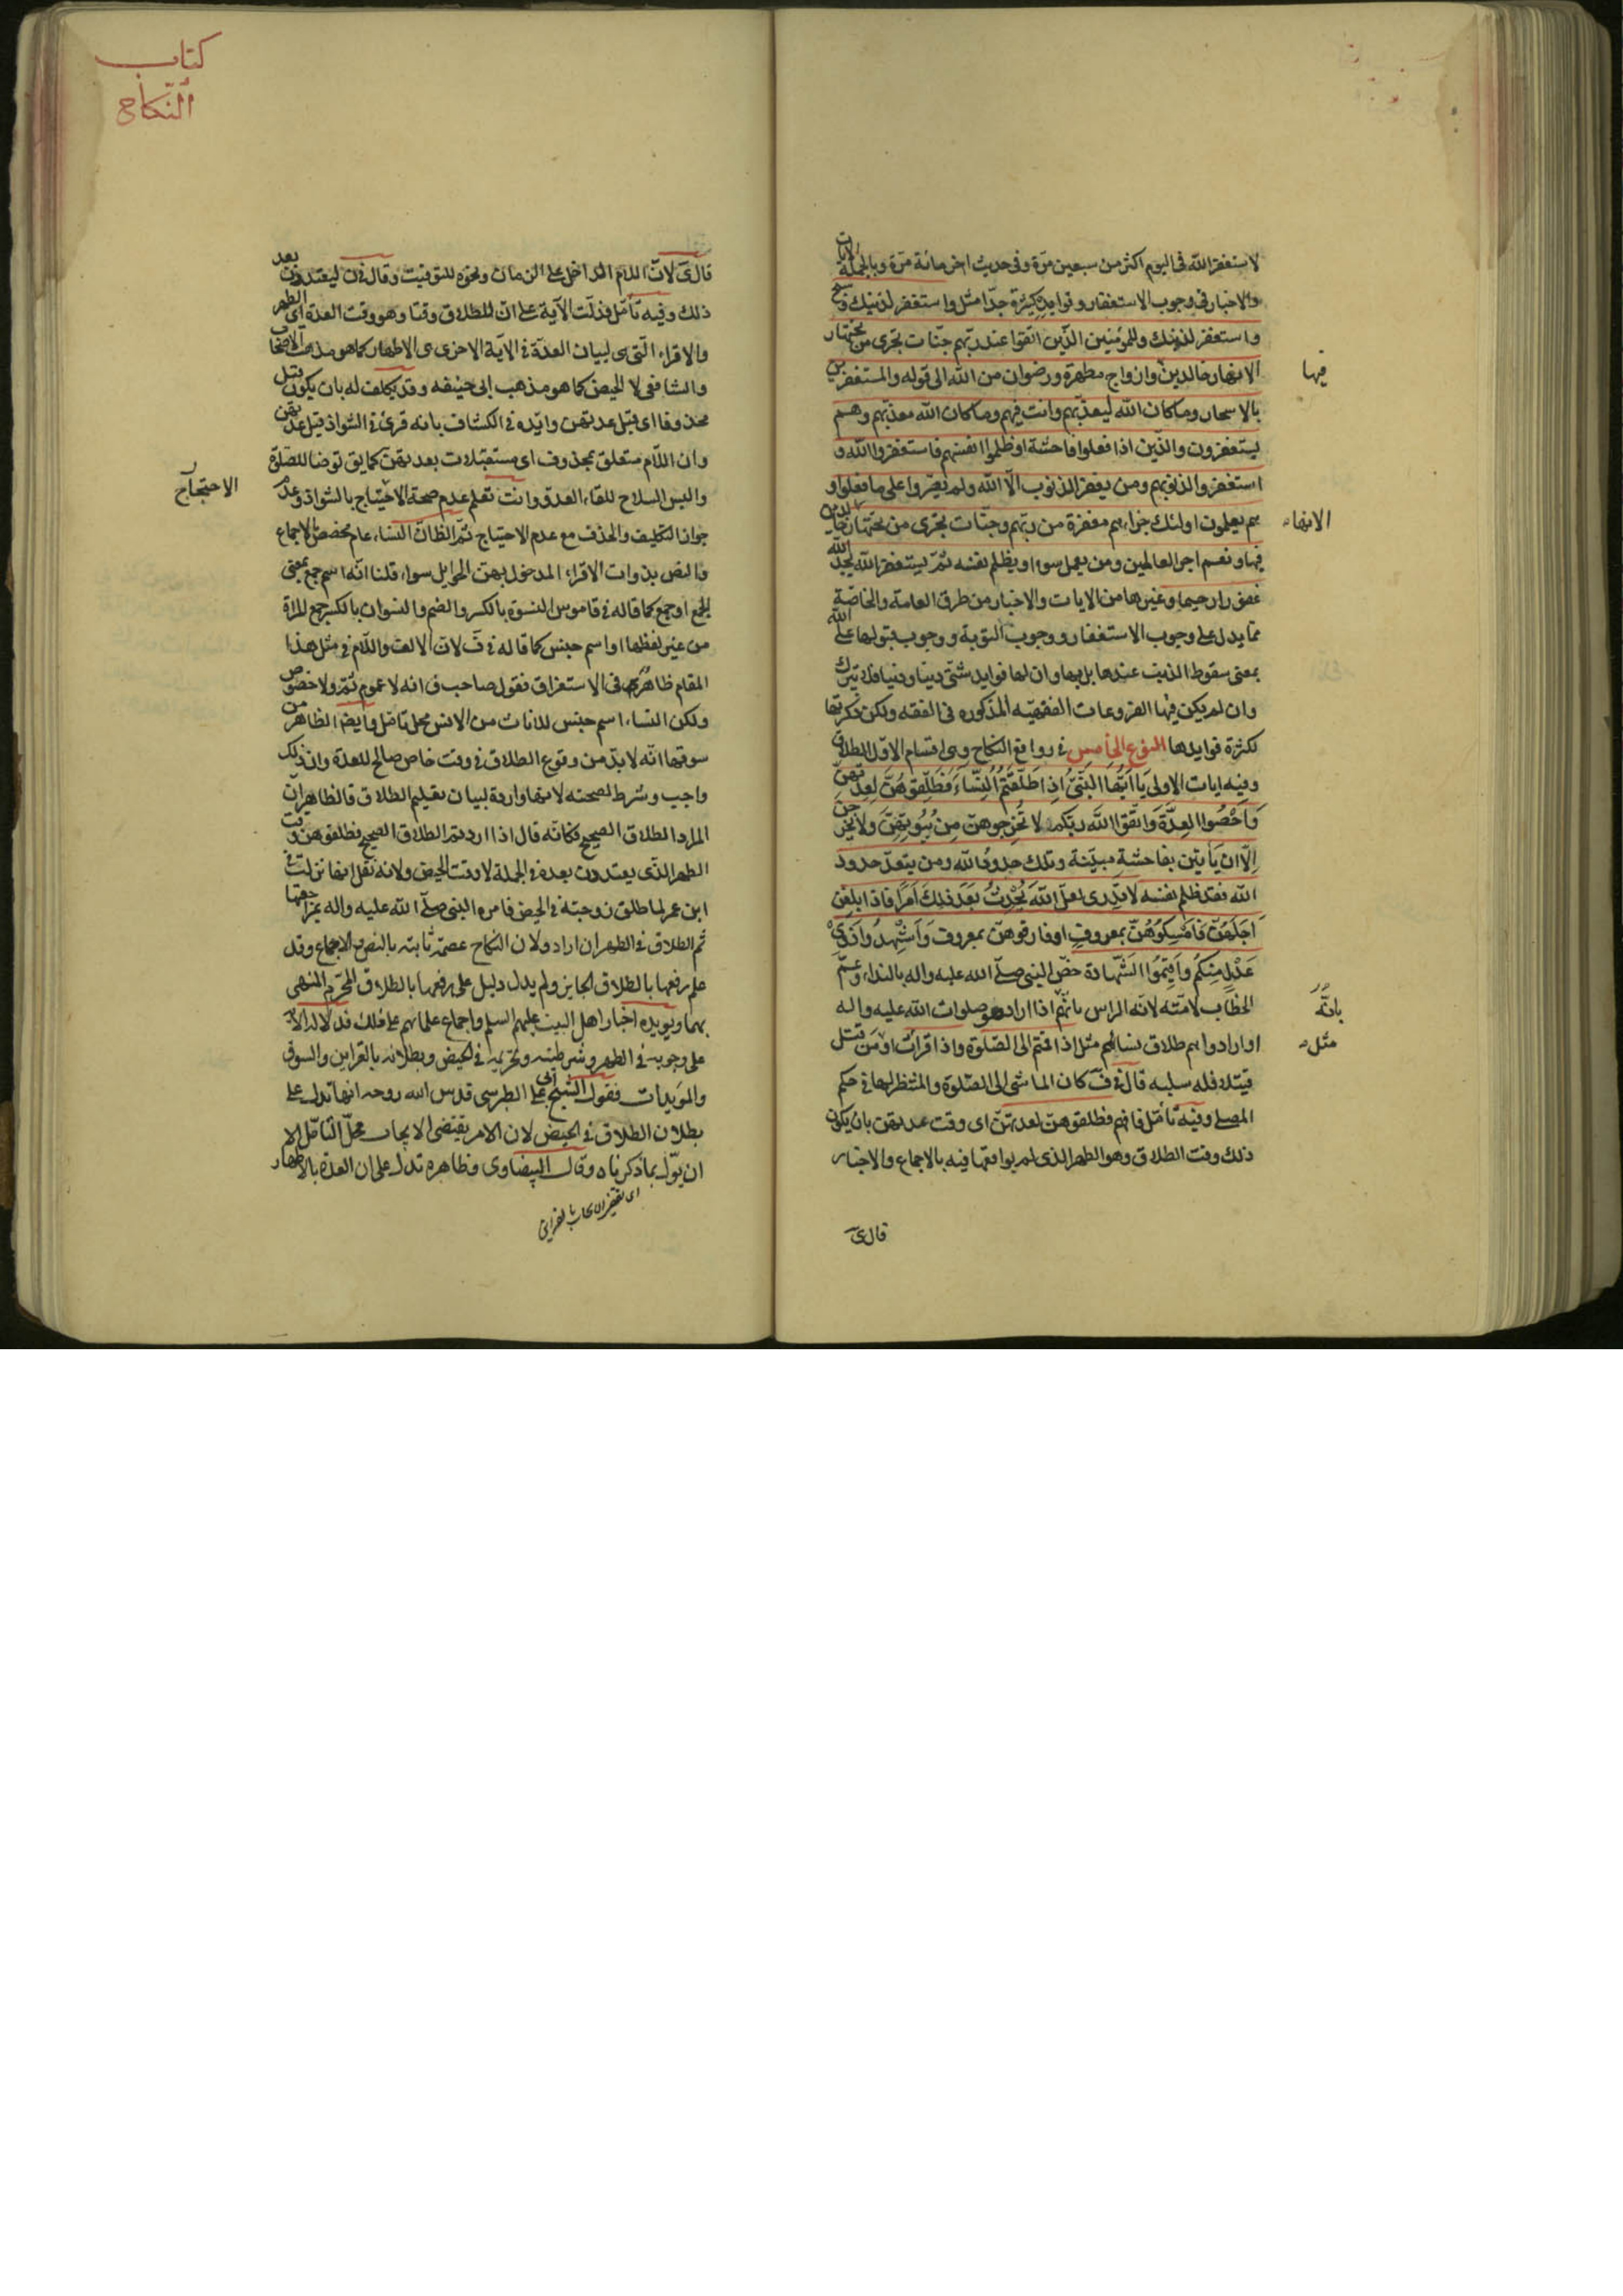 لاستغفر الله فى اليوم اكثر من سبعين مرة وفى حديث اخر مائة مرة وبالجملة الايات
والاخبار فى وجوب الاستغفار وفوايده كثيرة جدا مثل واستغفر لذنبك وسبح
واستغفر لذنبك وللمؤمنين الذين اتقوا عند ربهم جنات تجرى من تحتها
الانهار خالدين وازواج مطهرة ورضوان من الله الى قوله والمستغفرين
فيها
بالاسحار وما كان الله ليعذبهم وانت فيهم وما كان الله معذبهم وهم
يستغفرون والذين اذا فعلوا فاحشة او ظلموا انفسهم فاستغفروا الله و
استغفروا لذنوبهم ومن يغفر الذنوب الا الله ولم يصروا على ما فعلوا و
هم يعلمون اولئك جزاؤهم مغفرة من ربهم وجنات تجرى من تحتها خالدين
الانهار
فيها ونعم اجر العالمين ومن يعمل سوءا او يظلم نفسه ثم يستغفر الله يجد الله
غفورا رحيما وغيرها من الايات والاخبار من طرق العامة والخاصة
مما يدل على وجوب الاستغفار ووجوب التوبة ووجوب قبولها على الله
بمعنى سقوط الذنب عندها بل بها وان لها فوايد شتى دينا ودنيا فلا تترك
وان لم يكن فيها الفروعات الفقهيه المذكوره فى الفقه ولكن ذكرتها
لكثرة فوايدها النوع الخامس فى روافع النكاح وهى اقسام الاول الطلاق
وفيه ايات الاولى يَا اَيُّهَا النَّبِىُّ اِذَا طَلَّقْتُمُ النِّسَاءَ فَطَلِّقُوهُنَّ لِعِدَّتِهِنَّ
وَاَحْصُوا العِدَّةَ وَاتَّقُوا اللَّهَ ربكم لا تُخرِجوهنّ مِنْ بُيُوتِهِنَّ ولا يخرجن
اِلّا ان يَأتين بفاحشةٍ مبيّنة وتلك حدود الله ومن يتعدّ حدود
الله فقد ظلم نفسه لا تدرى لعلّ اللَّهَ يُحْدِثُ بَعدَ ذلِكَ اَمرًا فاذا بلغن
اَجَلَهُنّ فَاَمْسِكُوهُنّ بمعروفٍ او فارقوهنّ بمعروف وَاَشْهِدُوا ذَوَىْ
عَدْلٍ مِنْكُم وَاَقيمُوا الشَّهادة خصّ النبى صلى الله عليه واله بالنداء وعمّ
الخطاب لامته لانه الراس باثمّهم اذا اراد هو صلوات الله عليه واله
بانّه
او ارادوا هم طلاق نسائهم مثل اذا قمتم الى الصلوة واذا قرأت او من قتل
مثل
قتيلا فله سلبه قال فى ف كان الماشى الى الصلوة والمنتظر لها فى حكم
المصلى وفيه تأمل فافهم فطلقوهن لعدتهن اى وقت عدتهن بان يكون
ذلك وقت الطلاق وهو الطهر الذى لم يواقعها فيه بالاجماع والاخبار
قال ى
كتاب
النكاح
قال ى لانّ اللام الداخل على الزمان ونحوه للتوقيت وقال فى ن ليعتددن بعد
ذلك وفيه تأمل فدلت الآية على ان للطلاق وقتا وهو وقت العدة اى الطهر
والاقراء التى هى لبيان العدّة فى الآية الاخرى هى الاطهار كما هو مذهب الاصحاب
والشافعى لا الحيض كما هو مذهب ابى حنيفه وقد يكلف له بان يكون قبل
محذوفا اى قبل عدتهن وايّده فى الكشاف بانه قرئ فى الشواذ قبل عدتهن
وان اللام متعلق بمحذوف اى مستقبلات بعدتهن كما يق توضا للصلوة
والبس السلاح للقاء العدو وانت تعلم عدم صحة الاحتياج بالشواذ وعدم
الاحتجاج
جواز التكليف والحذف مع عدم الاحتياج ثمّ الظ ان النساء عام مخصص بالاجماع
والنص بذوات الاقراء المدخول بهن الحوايل سواء قلنا انه اسم جمع بمعنى
الجمع او جمع كما قاله فى قاموس النسوة بالكسر والضم والنسوان بالكسر جمع المراة
من غير لفظها او اسم جنس كما قاله فى ف لان الالف واللام فى مثل هذا
المقام ظاهر فى الاستغراق فقول صاحب ف انه لا عموم ثمّ ولا خصوص
ولكن النساء اسم جنس للاناث من الانس محل تامل وايضا الظاهر من
سوقها انّه لا بدّ من وقوع الطلاق فى وقت خاص صالح للعدة وان ذلك
واجب وشرط لصحته لانها واردة لبيان تعليم الطلاق فالظاهر ان
المراد الطلاق الصحيح فكانه قال اذا اردتم الطلاق الصحيح فطلقوهن وقت
الطهر الذى يعتددن بعده فى الجملة لا وقت الحيض ولانه نقل انها نزلت فى
ابن عمر لما طلق زوجته فى الحيض فامره النبى صلى الله عليه واله بمراجعتها
ثم الطلاق فى الطهر ان اراد ولان النكاح عصمة ثابتة بالنص والاجماع وقد
علم رفعها بالطلاق الجايز ولم يدل دليل على رفعها بالطلاق المحرم المنهى
بهما ويؤيده اخبار اهل البيت عليهم السلم واجماع علمائهم على ذلك فدلالة الامر
على وجوبه فى الطهر وشرطيته وتحريمه فى الحيض وبطلانه بالقراين والسوق
والمؤيدات فقول الشيخ ابى على الطبرسى قدس الله روحه انها تدل على
بطلان الطلاق فى الحيض لان الامر يقتضى الايجاب محلّ التأمّل الا
ان يؤل بما ذكرناه وقال البيضاوى وظاهره تدل على ان العدة بالاطهار